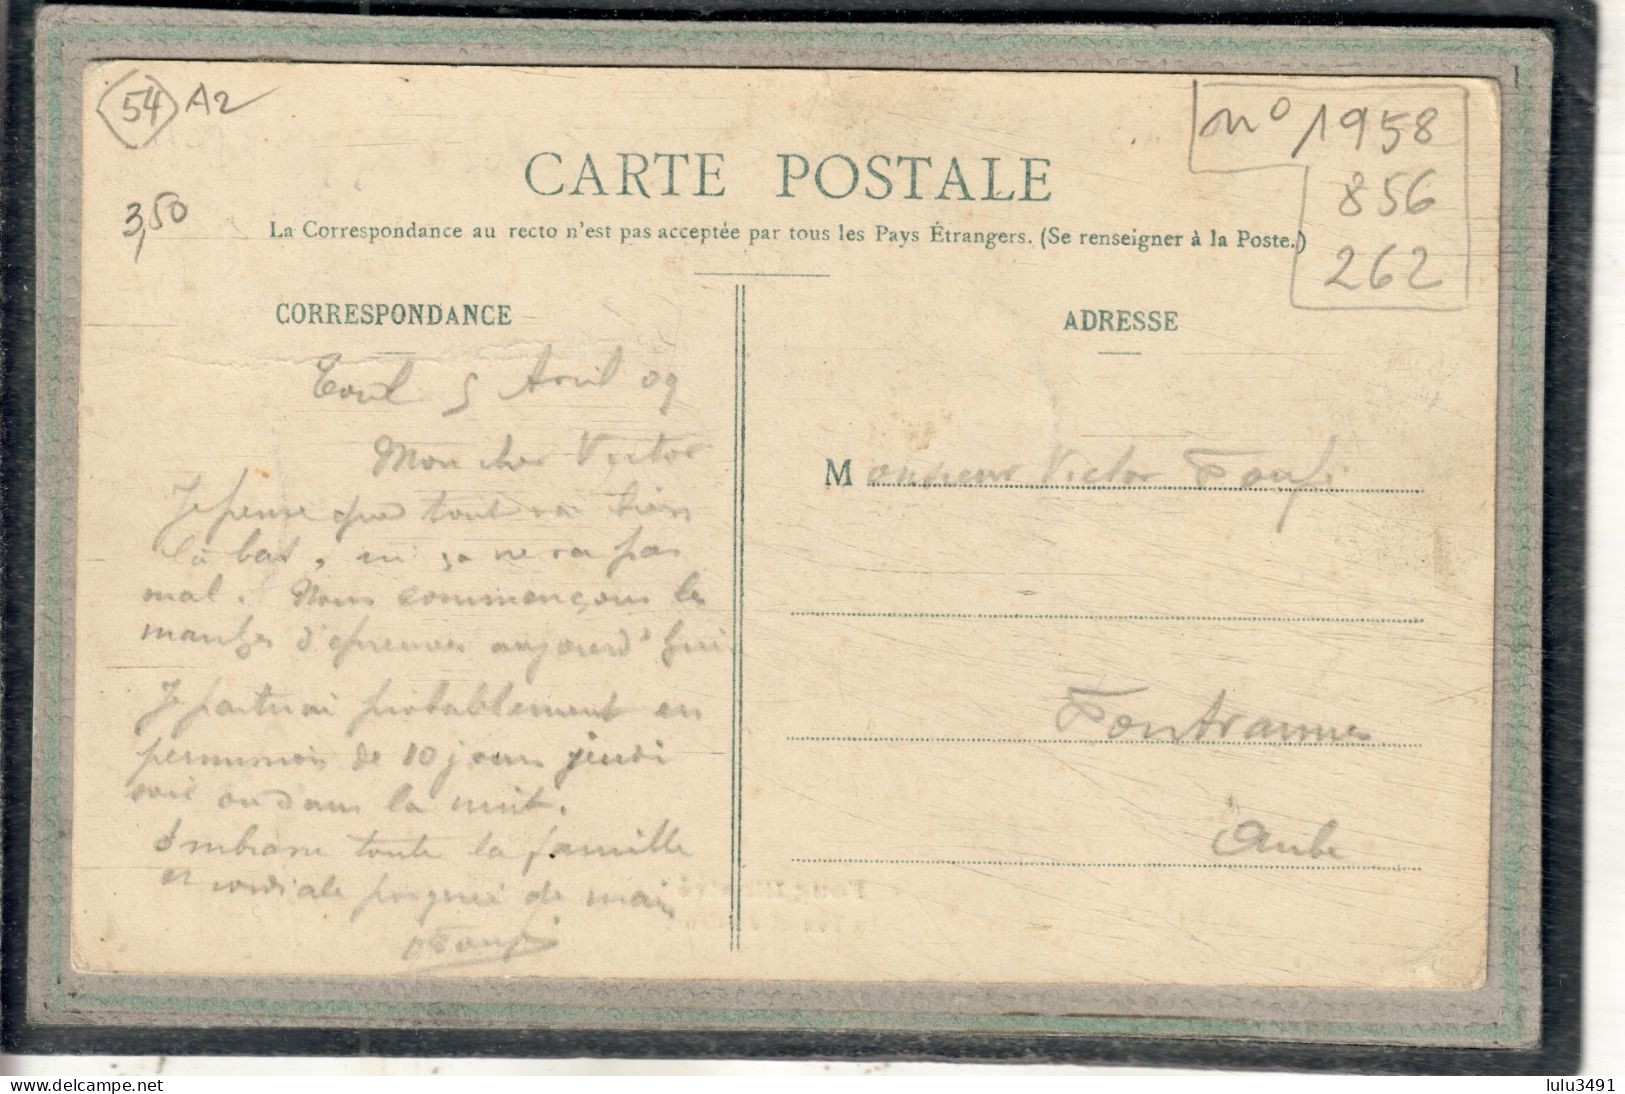 54 A2
3,50
no 1958
856
262
CARTE POSTALE
La Correspondance au recto n'est pas acceptée par tous les Pays Étrangers. (Se renseigner à la Poste.)
CORRESPONDANCE
Toul 5 Avril 09
Mon cher Victor
Je pense que tout va bien
là bas, ici ça ne va pas
mal. Nous commençons les
marches d'épreuves aujourd'hui
Je partirai probablement en
permission de 10 jours jeudi
soir ou dans la nuit.
Embrasse toute la famille
et cordiale poignée de main
ADRESSE
Monsieur Victor
Fontvannes
Aube
delcampe.net
lulu3491